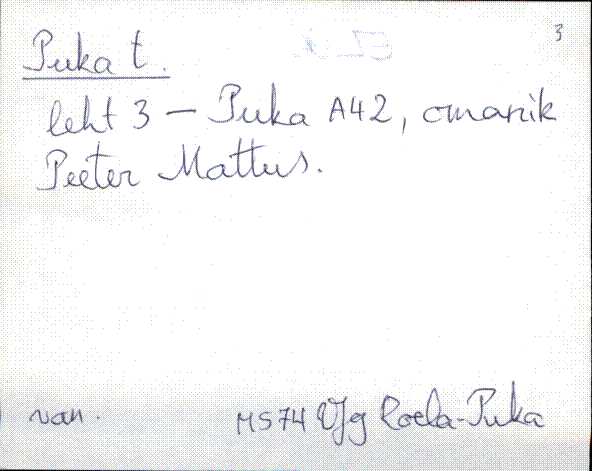 3
Puka t.
leht 3 – Puka A42, omanik
Peeter Mattus.
van.
MS74 VJg Roela-Puka